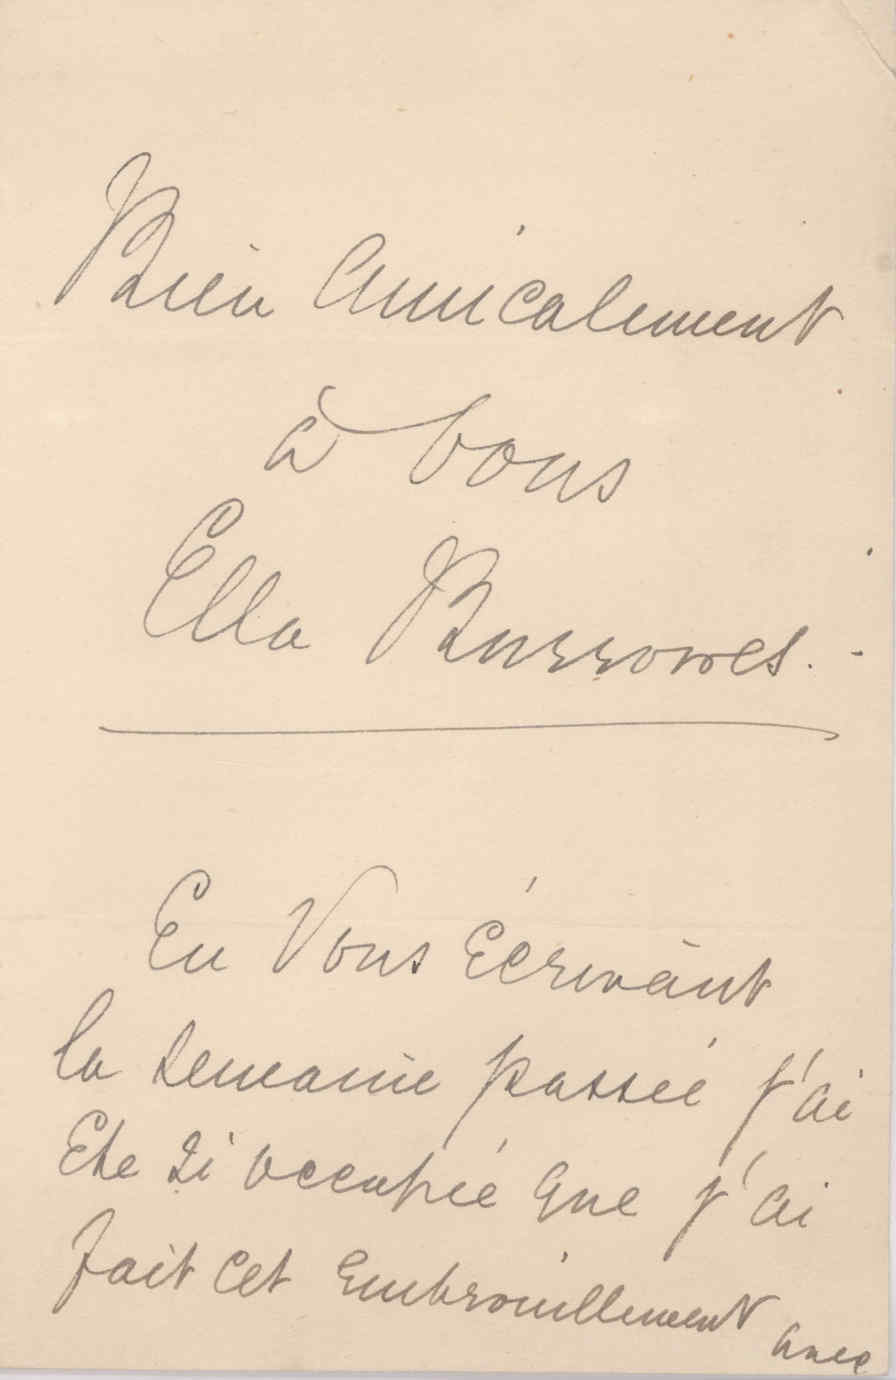 Bien Amicalement
à vous
Ella Burrowes. -
En Vous Écrivant
la semaine passée j'ai
Ete si occupée que j'ai
fait cet Embrouillement avec